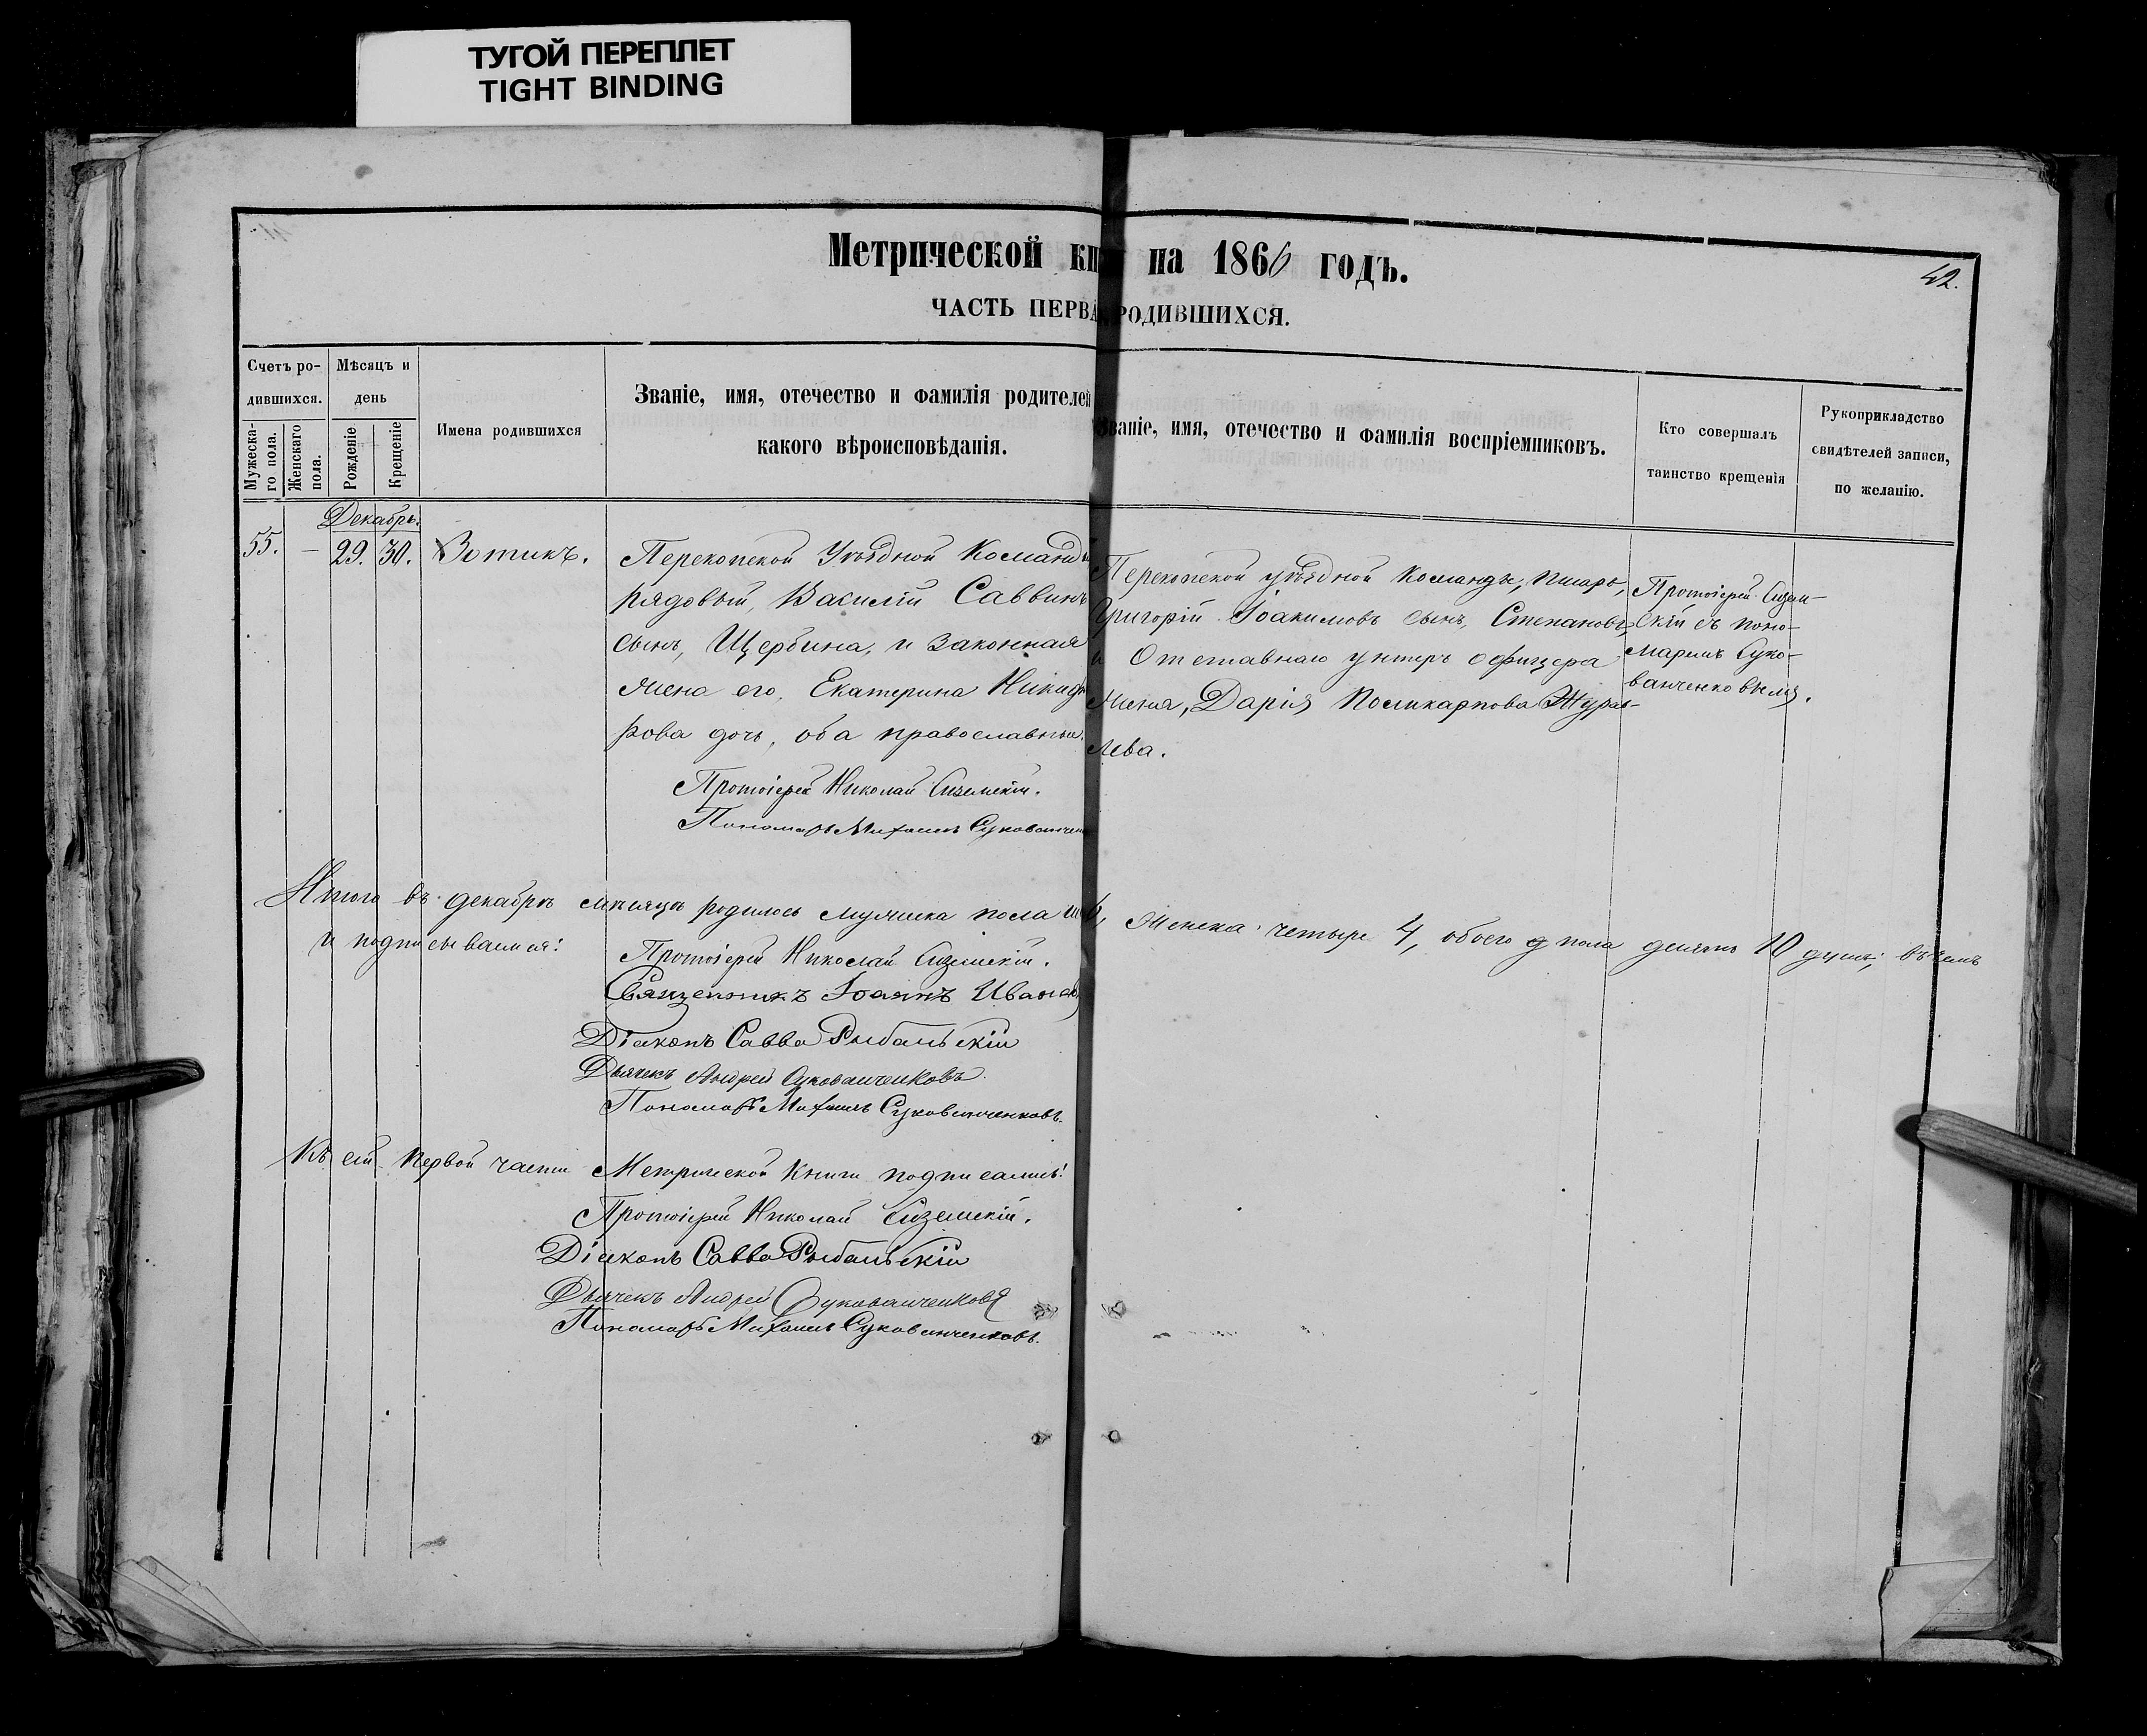 ТУГОЙ ПЕРЕПЛЕТ
TIGHT BINDING
Метрической кн на 1866 годъ.
42.
ЧАСТЬ ПЕРВА РОДИВШИХСЯ.
Счетъ ро-
дившихся.
Мужеска-
го пола.
Женскаго
пола.
Мѣсяцъ и
день
Рожденіе
Крещеніе
Имена родившихся
Званіе, имя, отечество и фамилія родителей
какого вѣроисповѣданія.
Званіе, имя, отечество и фамилія воспріемниковъ.
Кто совершалъ
таинство крещенія
Рукоприкладство
свидѣтелей записи,
по желанію.
Декабрь.
55. — 29. 30. Зотикъ.
Перекопской Уѣздной Команды
рядовый, Василій Саввинъ
сынъ, Щербина, и законная
жена его, Екатерина Никифо
рова дочь, оба православные.
Протоіерей Николай Сиземскій.
Пономарь Михаилъ Сукованчен
Перекопской уѣздной команды, писарь,
Григорій Іоакимовъ сынъ, Степановъ,
и Отставнаго унтеръ офицера
жена, Дарія Поликарпова Журав-
лева.
Протоіерей Сизем-
скій съ поно-
маремъ Суко-
ванченковымъ.
Итого въ декабрѣ мѣсяцѣ родилось мужеска пола 6, женска четыре 4, обоего пола десять 10 душъ; въ чемъ
и подписываемся:
Протоіерей Николай Сиземскій.
Священникъ Іоаннъ Ивановъ
Діаконъ Савва Рыбальскій
Дьячекъ Андрей Сукованченковъ.
Пономарь Михаилъ Сукованченковъ.
Къ сей первой части Метрической Книги подписались:
Протоіерей Николай Сиземскій.
Діаконъ Савва Рыбальскій
Дьячекъ Андрей Сукованченковъ
Пономарь Михаилъ Сукованченковъ.